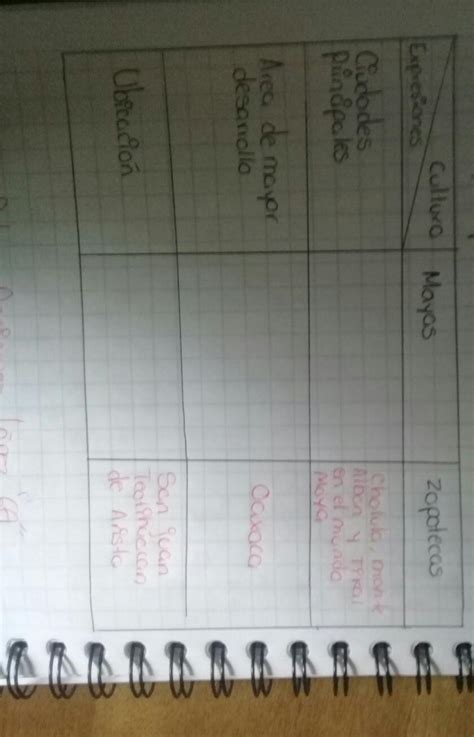 Cultura
Expresiones
Mayas
Zapotecas
Ciudades
principales
Cholula, monte
Alban y Tikal
en el mundo
Maya
Area de mayor
desarrollo
Oaxaca
Ubicación
San juan
Teotihuacan
de Arista